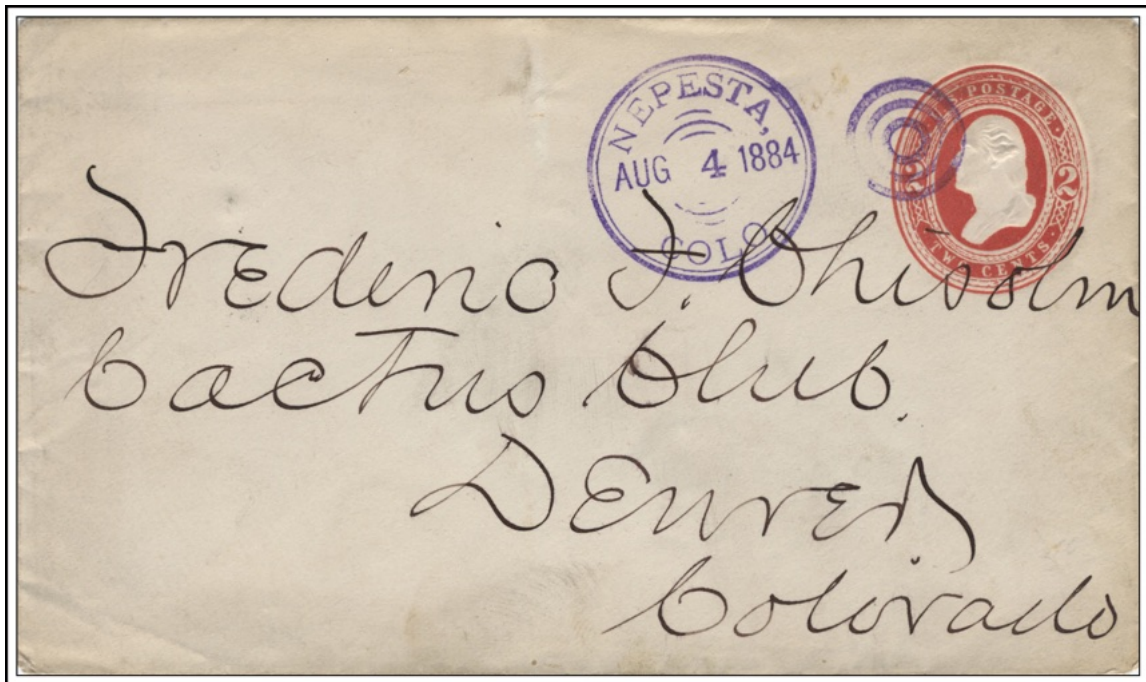 NEPESTA,
AUG 4 1884
COLO
U.S. POSTAGE.
2 2
TWO CENTS.
Frederic J. Chisolm
Cactus Club.
Denver,
Colorado